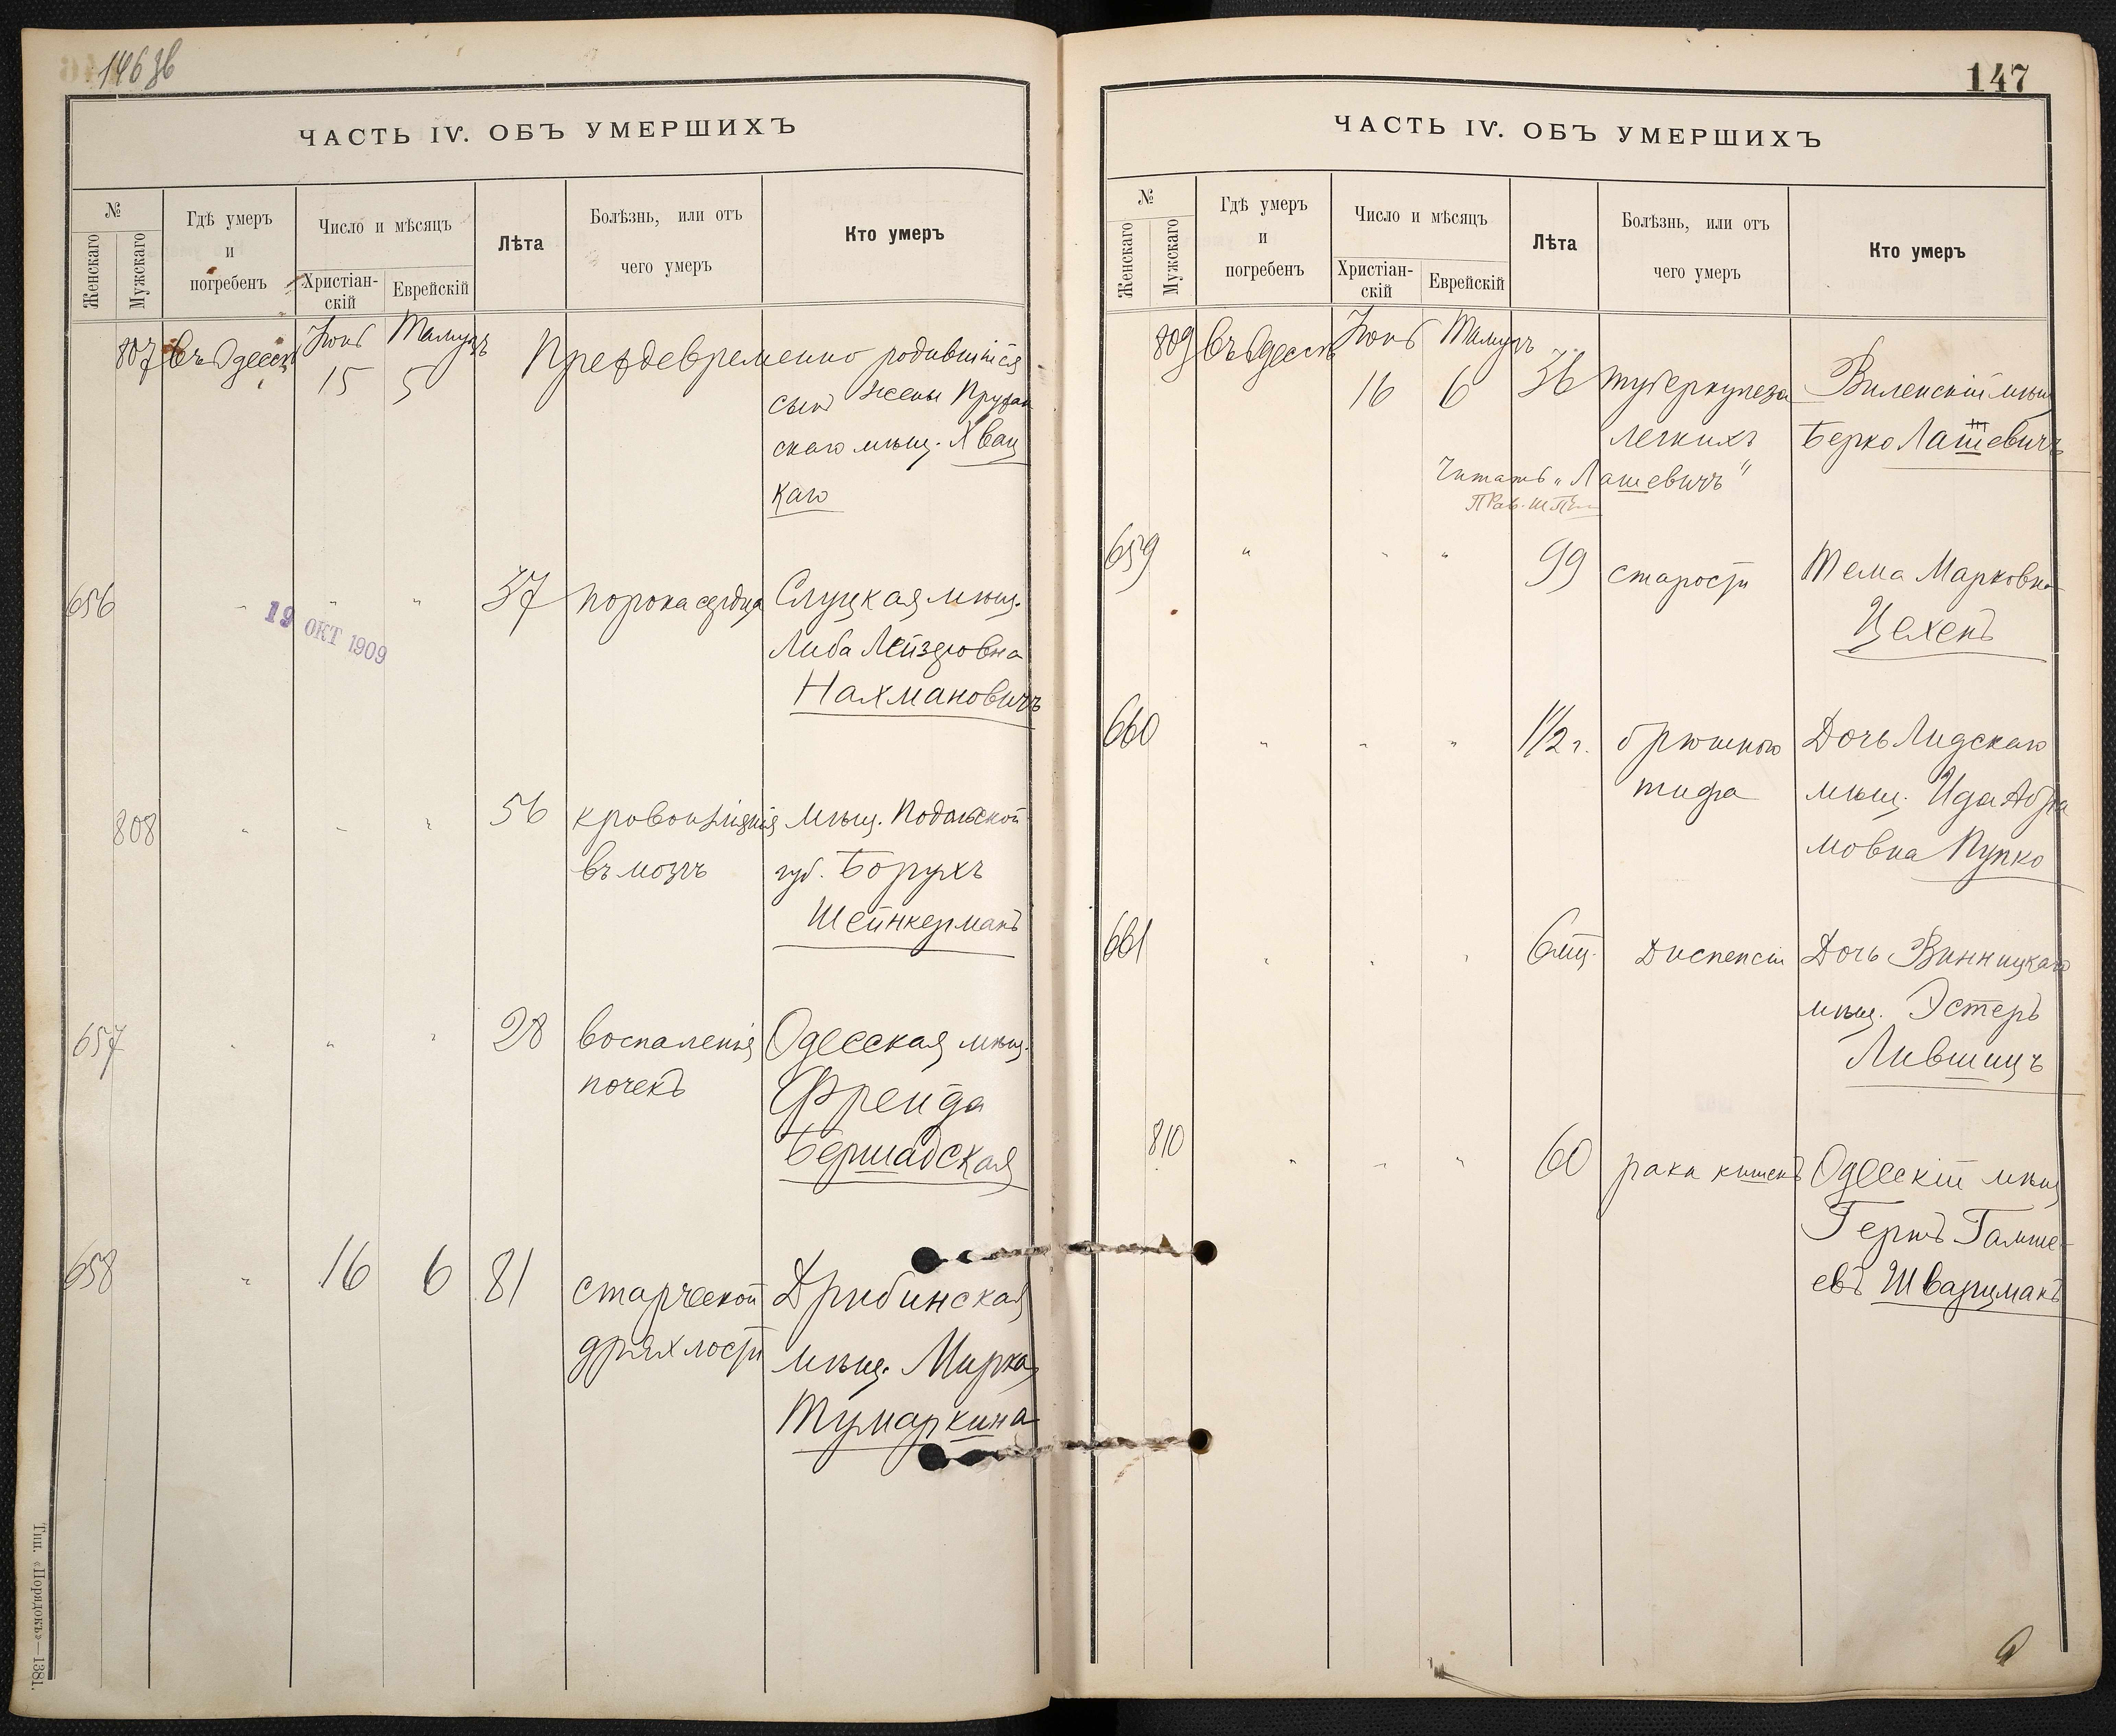 146 зв
ЧАСТЬ IV. ОБЪ УМЕРШИХЪ
№
Женскаго
Мужскаго
Гдѣ умеръ
и
погребенъ
Число и мѣсяцъ
Христіан-
скій
Еврейскій
Лѣта
Болѣзнь, или отъ
чего умеръ
Кто умеръ
807 въ Одессѣ Іюнь Тамузъ Преждевременно родившійся
15 5 сынъ жены Пружан
скаго мѣщ. Хвац
каго
656 " " " 37 порока сердца Слуцкая мѣщ.
Либа Лейзеровна
Нахмановичъ
19 ОКТ 1909
808 " " " 56 кровоизліянія мѣщ. Подольской
въ мозгъ губ. Борухъ
Шейнкерманъ
657 " " " 28 воспаленія Одесская мѣщ.
почекъ Фрейда
Бершадская
658 " 16 6 81 старческой Дрибинская
дряхлости мѣщ. Мирка
Тумаркина
Тип. «Порядокъ»—1381.
147
ЧАСТЬ IV. ОБЪ УМЕРШИХЪ
№
Женскаго
Мужскаго
Гдѣ умеръ
и
погребенъ
Число и мѣсяцъ
Христіан-
скій
Еврейскій
Лѣта
Болѣзнь, или отъ
чего умеръ
Кто умеръ
809 въ Одессѣ Іюнь Тамузъ
16 6 36 туберкулеза Виленскій мѣщ
легкихъ Берко Лашевичъ
Читать „Лашевичъ"
659 " " " 99 старости Тема Марковна
Цехенъ
660 " " " 1 1/2 г. брюшного Дочь Лидскаго
тифа мѣщ. Ида Абра
мовна Пупко
661 " " " 6 мц. диспепсіи Дочь Винницкаго
мѣщ. Эстеръ
Лившицъ
810 " " " 60 рака кишекъ Одесскій мѣщ
Гершъ
евъ Шварцманъ